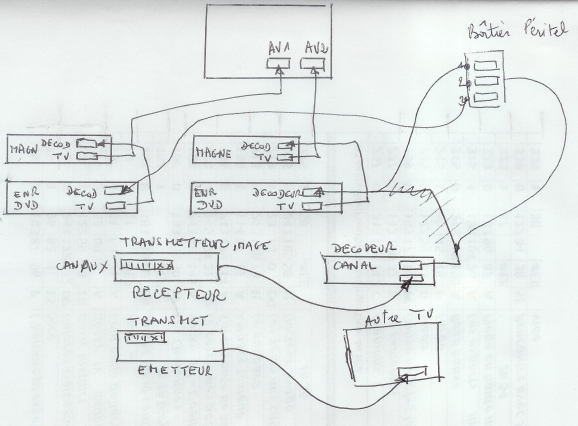 Boîtier Péritel
AV1 AV2
1
2
3
MAGN DECOD
TV
MAGNE DECOD
TV
ENR DECOD
DVD TV
ENR DECODEUR
DVD TV
TRANSMETTEUR IMAGE
CANAUX
RÉCEPTEUR
DECODEUR
CANAL
TRANSMET
EMETTEUR
Autre TV